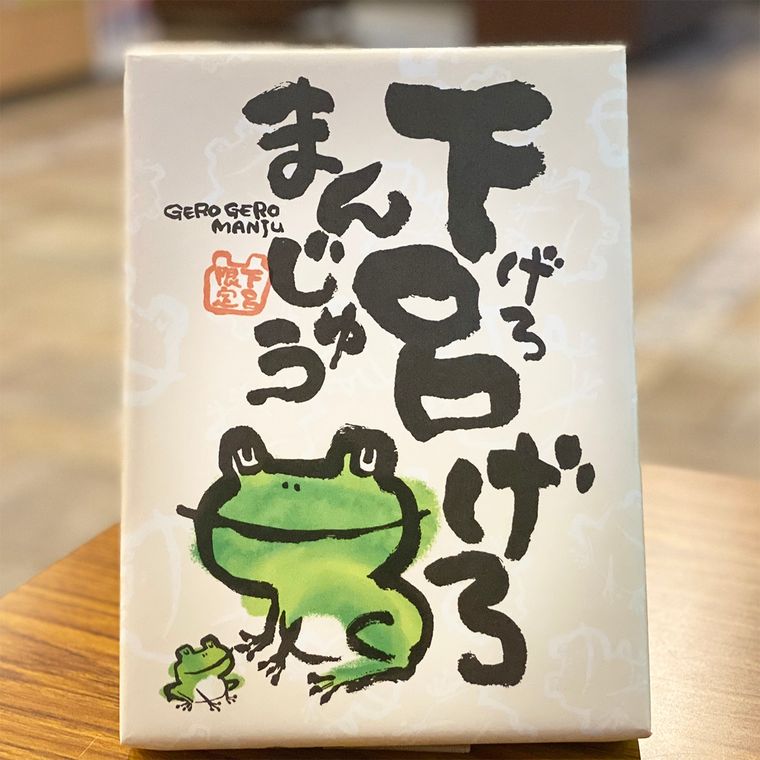 下呂げろ
げろ
まんじゅう
GERO GERO
MANJU
下呂
限定